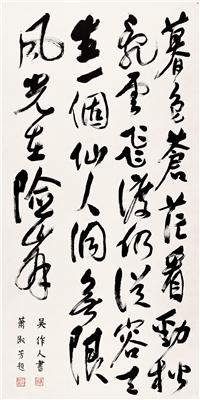 暮色蒼茫看勁松
亂雲飛渡仍從容天
生一個仙人洞無限
風光在險峯
吴作人書
蕭淑芳題